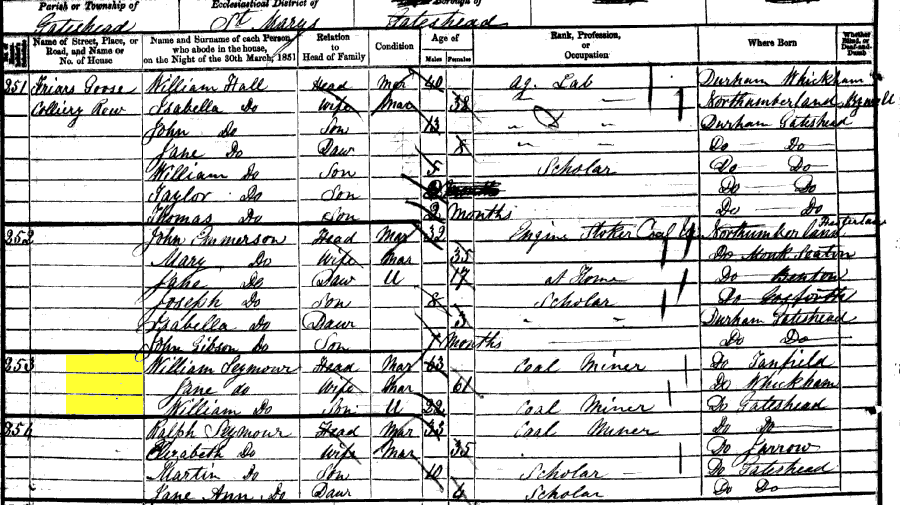 Parish or Township of Gateshead
Ecclesiastical District of St Marys
Borough of Gateshead
Name of Street, Place, or Road, and Name or No. of House | Name and Surname of each Person who abode in the house, on the Night of the 30th March, 1851 | Relation to Head of Family | Condition | Age of Males Females | Rank, Profession, or Occupation | Where Born | Whether Blind, or Deaf-and-Dumb
251 Friars Goose William Hall Head Mar 40 Ag. Lab Durham Whickham
Colliery Row Isabella Do Wife Mar 38 Northumberland
John Do Son 13 Durham Gateshead
Jane Do Dawr 8 Do Do
William Do Son 5 Scholar Do Do
Taylor Do Son Do Do
Thomas Do Son 2 Months Do Do
252 John Emmerson Head Mar 32 Engine Stoker Northumberland
Mary Do Wife Mar 35 Do Monk Seaton
Jane Do Dawr U 17 at Home Do Benton
Joseph Do Son 8 Scholar Do Gosforth
Isabella Do Dawr 3 Durham Gateshead
John Gibson Do Son 7 Months Do Do
253 William Seymour Head Mar 63 Coal Miner Do Tanfield
Jane do Wife Mar 61 Do Whickham
William Do Son U 22 Coal Miner Do Gateshead
254 Ralph Seymour Head Mar 33 Coal Miner Do Do
Elizabeth Do Wife Mar 35 Do Jarrow
Martin Do Son 10 Scholar Do Gateshead
Jane Ann Do Dawr 4 Scholar Do Do